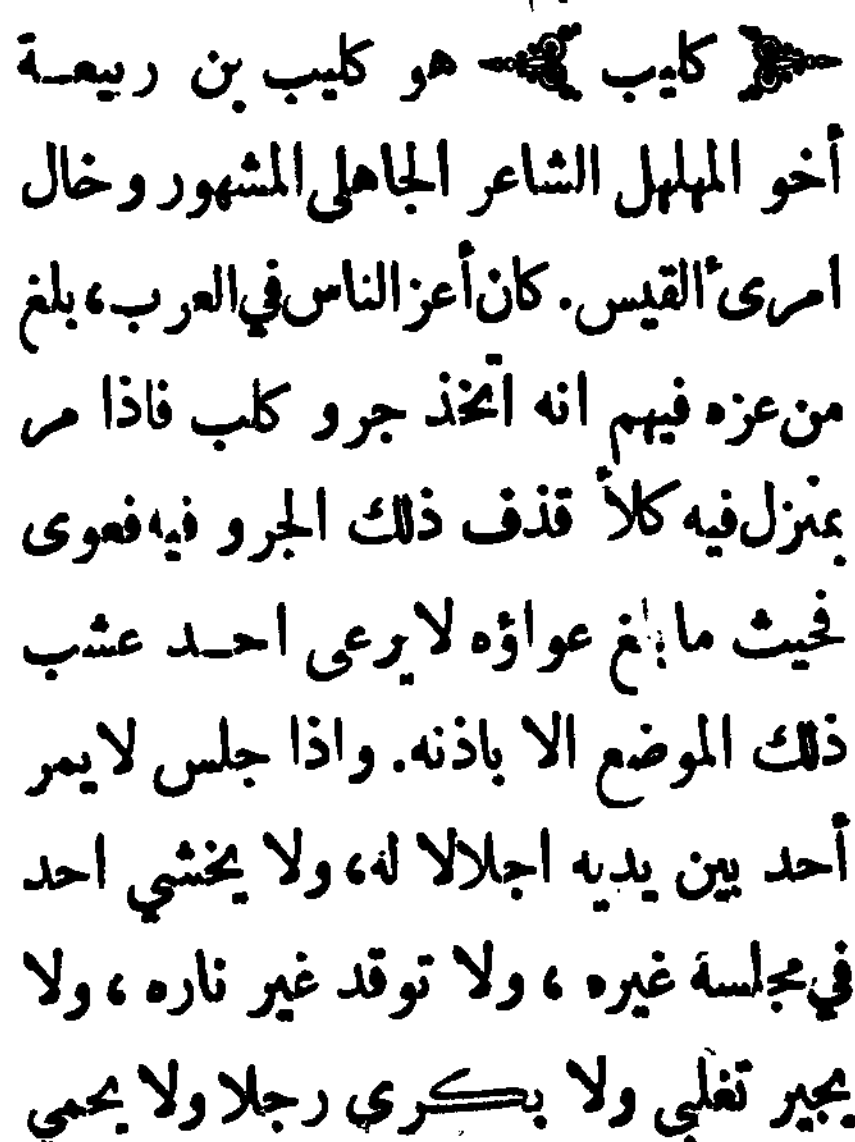 ﴿ كليب ﴾ هو كليب بن ربيعـة
أخو المهلهل الشاعر الجاهلي المشهور وخال
امرىء القيس. كان أعز الناس في العرب، بلغ
من عزه فيهم انه اتخذ جرو كلب فاذا مر
بمنزل فيه كلأ قذف ذلك الجرو فيه فعوى
فحيث ما بلغ عواؤه لا يرعى احـد عشب
ذلك الموضع الا باذنه. واذا جلس لا يمر
أحد بين يديه اجلالا له، ولا يخشي احد
في مجلسة غيره ، ولا توقد غير ناره ، ولا
يجير تغلبي ولا بكري رجلا ولا يحمي